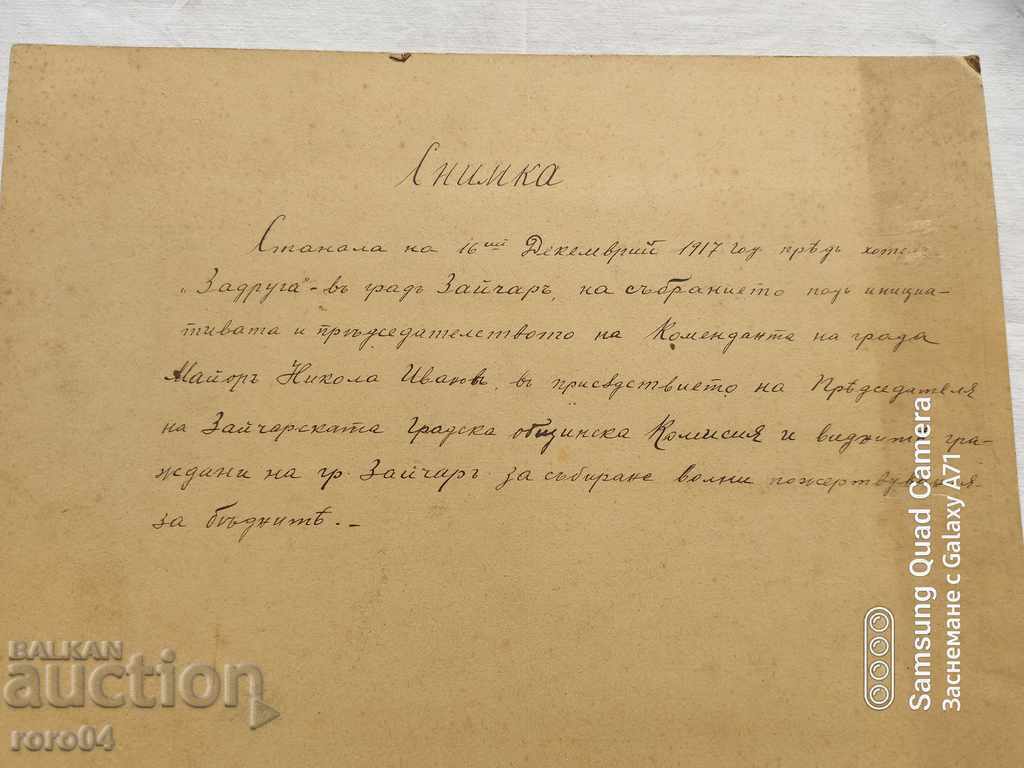 Снимка
Станала на 16ий Декемврий 1917 год прѣдъ хотел
„Задруга"-въ градъ Зайчаръ, на събранието подъ инициа-
тивата и прѣдседателството на Коменданта на града
Майоръ Никола Ивановъ, въ присѫдствието на Прѣдседателя
на Зайчарската градска общинска Комисия и виднитѣ гра-
ждани на гр. Зайчаръ за събиране волни пожертвувания
за бѣднитѣ.-
BALKAN
auction
roro04
Samsung Quad Camera
Заснемане с Galaxy A71